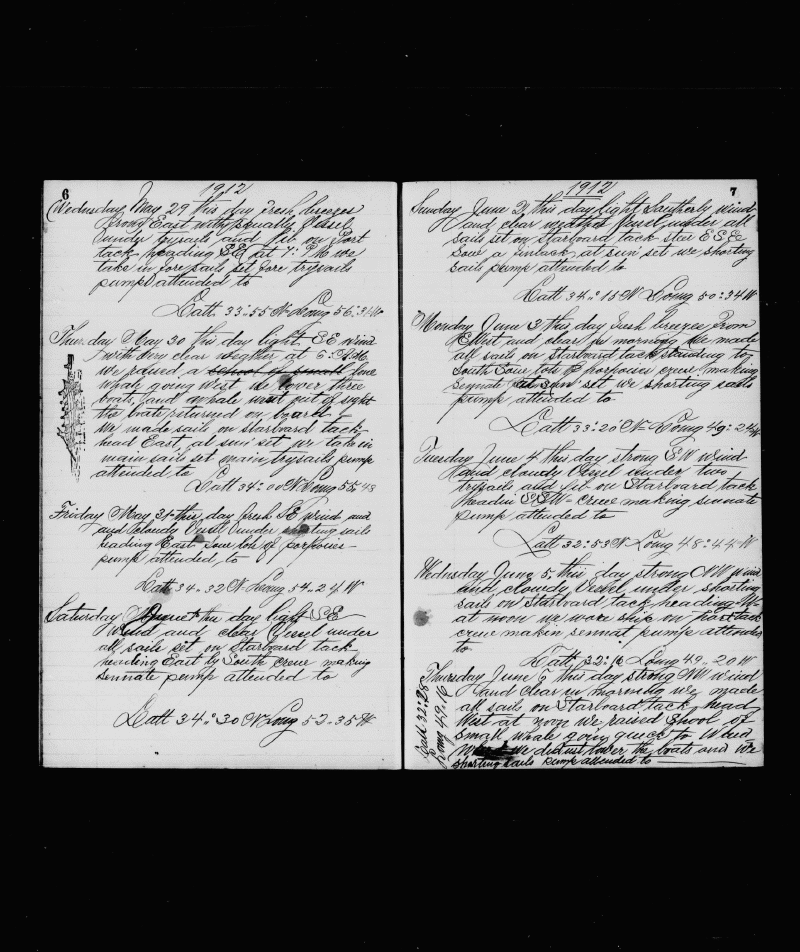 6
1912
Wednesday May 29 this day Fresh breezes
from East with squally Vessel
under trysails and Jib on Port
tack heading at P M we
take in fore sails set fore trysails
pump attended to
Latt 33:55 N Long 56:34 W
Thursday May 30 this day light SE wind
with very clear weather at 6: A M
we raised a school of small fine
whale going West we lover three
boats and whale went out of sight
the boats returned on board
We made sails on starboard tack
head East at sun set we take in
main sail set main trysails pump
attended to
Latt 34:00 N Long 55:43
Friday May 31 this day fresh SE wind and
and cloudy Vessel under shorting sails
heading East saw lots of porpoises
pump attended to
Latt 34:32 N Long 54:24 W
Saturday June 1 this day light SE
Wind and clear Vessel under
all sails set on starboard tack
heading East by South crew making
sennate pump attended to
Latt 34:30 N Long 52:35 W
7
1912
Sunday June 2 this day light Southerly wind
and clear weather Vessel under all
sails set on Starboard tack star ESE
Saw a finback at sun set we shorting
sails pump attended to
Latt 34:15 N Long 50:34 W
Monday June 3 this day Fresh breeze From
West and clear in morning we made
all sails on Starboard tack standing to
South Saw lots of porpoises crew making
sennate at sun set we shorting sails
pump attended to
Latt 33:20 N Long 49:24 W
Tuesday June 4 this day strong SW wind
and cloudy Vessel under two
trysails and Jib on Starboard tack
headin crew making sinnate
pump attended to
Latt 32:53 N Long 48:44 W
Wednesday June 5 this day strong NW wind
and cloudy Vessel under shorting
sails on Starboard tack heading
at noon we wore ship on Port tack
crew makin sennat pump attended
to
Latt 32:16 Long 49:20 W
Thursday June 6 this day strong NW wind
and clear in morning we made
all sails on Starboard tack head
West at noon we raised Shool of
small whale going quick to Wind
we did not lover the boats and we
shorting sails pump attended to
Latt 32:28
Long 49:16